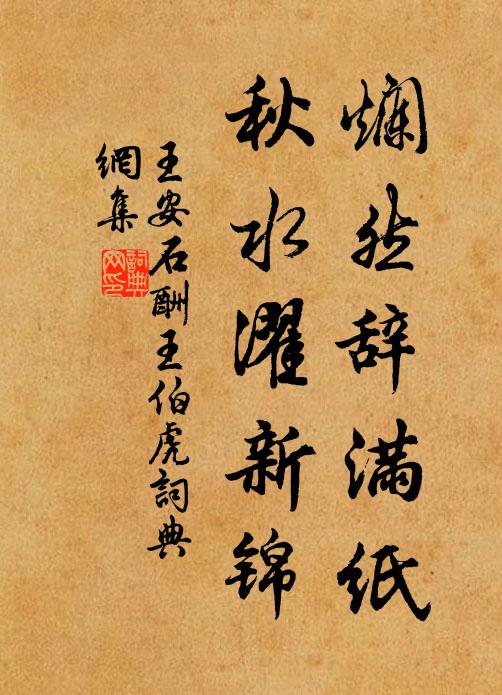 爛然辞满纸
秋水濯新锦
王安石酬王伯虎詞典
網集
詞典
网印